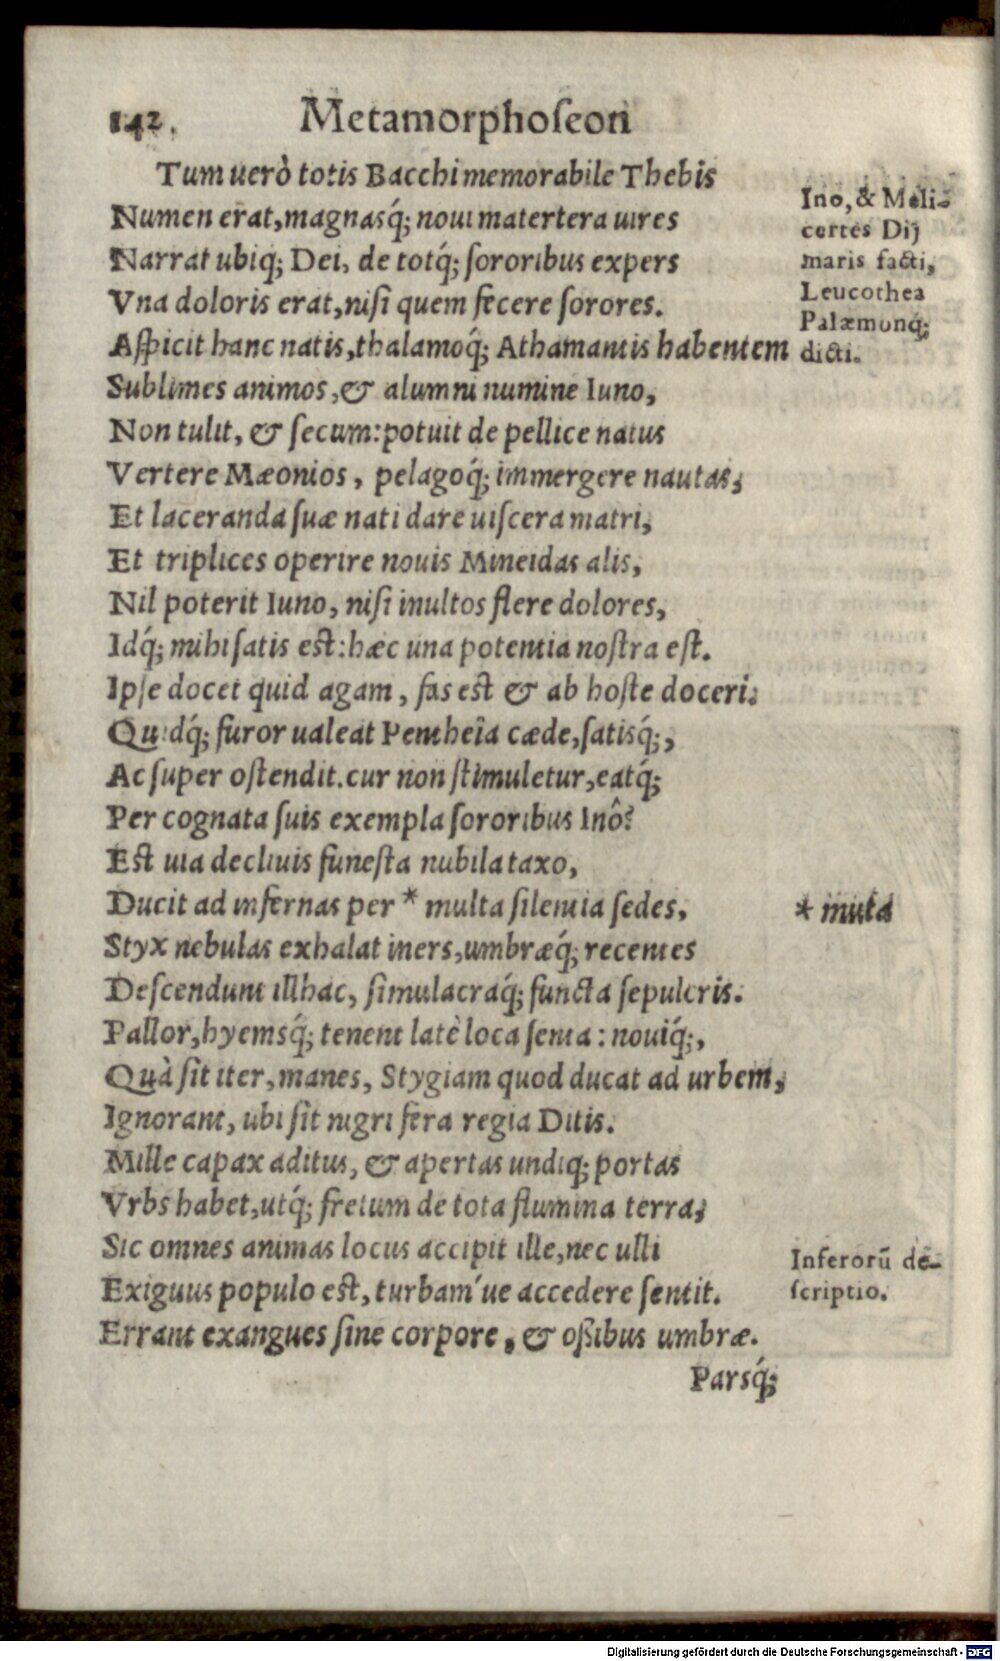 142.
Metamorphoseon
Tum uerò totis Bacchi memorabile Thebis
Numen erat, magnasq́; noui matertera uires
Narrat ubiq; Dei, de totq́; sororibus expers
Vna doloris erat, nisi quem fecere sorores.
Aspicit hanc natis, thalamoq́; Athamantis habentem
Sublimes animos, & alumni numine Iuno,
Non tulit, & secum: potuit de pellice natus
Vertere Mæonios, pelagoq́; immergere nautas;
Et laceranda suæ nati dare uiscera matri,
Et triplices operire nouis Mineidas alis,
Nil poterit Iuno, nisi inultos flere dolores,
Idq́; mihi satis est: hæc una potentia nostra est.
Ipse docet quid agam, fas est & ab hoste doceri.
Quidq́; furor ualeat Pentheîa cæde, satisq́;,
Ac super ostendit. cur non stimuletur, eatq́;
Per cognata suis exempla sororibus Inô?
Est uia decliuis funesta nubila taxo,
Ducit ad infernas per * multa silentia sedes,
Styx nebulas exhalat iners, umbræq́; recentes
Descendunt illhac, simulacraq́; functa sepulcris.
Pallor, hyemsq́; tenent latè loca senta: nouiq́;,
Quà sit iter, manes, Stygiam quod ducat ad urbem,
Ignorant, ubi sit nigri fera regia Ditis.
Mille capax aditus, & apertas undiq; portas
Vrbs habet, utq́; fretum de tota flumina terra;
Sic omnes animas locus accipit ille, nec ulli
Exiguus populo est, turbam'ue accedere sentit.
Errant exangues sine corpore, & oßibus umbræ.
Parsq́;
Ino, & Meli-
certes Dij
maris facti,
Leucothea
Palæmonq́;
dicti.
* muta
Inferorū de-
scriptio.
Digitalisierung gefördert durch die Deutsche Forschungsgemeinschaft - DFG